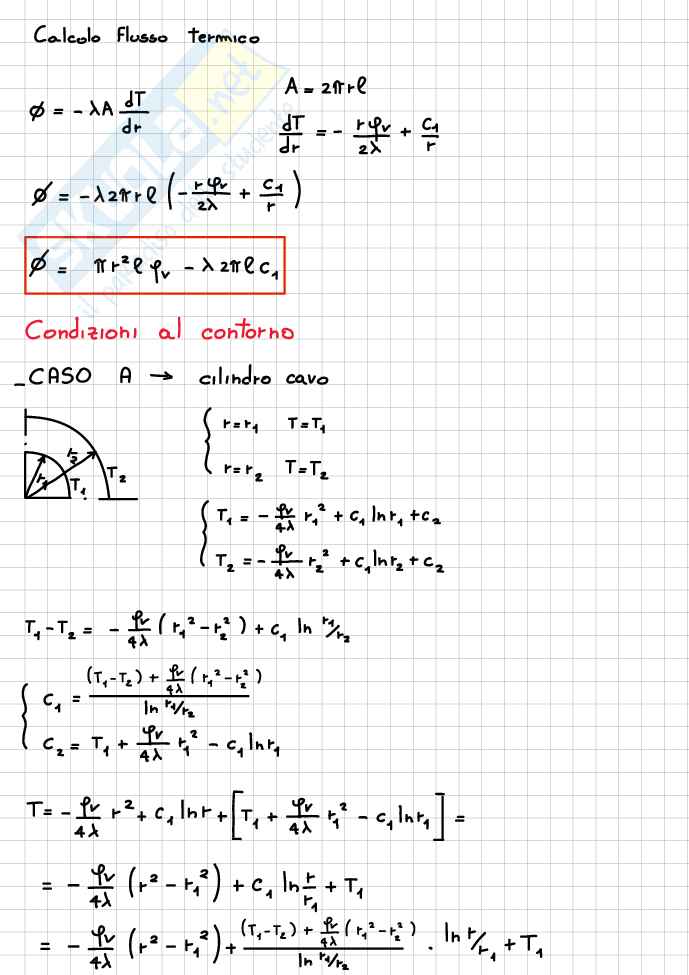 Calcolo Flusso termico
ϕ = -λA dT/dr
A = 2πrℓ
dT/dr = - rφᵥ/2λ + C₁/r
ϕ = -λ2πrℓ (- rφᵥ/2λ + C₁/r)
ϕ = πr²ℓ φᵥ - λ2πℓC₁
Condizioni al contorno
_CASO A → cilindro cavo
r=r₁ T=T₁
r=r₂ T=T₂
r₁ r₂ T₁ T₂
T₁ = - φᵥ/4λ r₁² + C₁ ln r₁ + C₂
T₂ = - φᵥ/4λ r₂² + C₁ ln r₂ + C₂
T₁-T₂ = - φᵥ/4λ (r₁²-r₂²) + C₁ ln r₁/r₂
C₁ = ((T₁-T₂) + φᵥ/4λ (r₁²-r₂²)) / ln r₁/r₂
C₂ = T₁ + φᵥ/4λ r₁² - C₁ ln r₁
T = - φᵥ/4λ r² + C₁ ln r + [T₁ + φᵥ/4λ r₁² - C₁ ln r₁] =
= - φᵥ/4λ (r² - r₁²) + C₁ ln r/r₁ + T₁
= - φᵥ/4λ (r² - r₁²) + ((T₁-T₂) + φᵥ/4λ (r₁²-r₂²)) / ln r₁/r₂ . ln r/r₁ + T₁